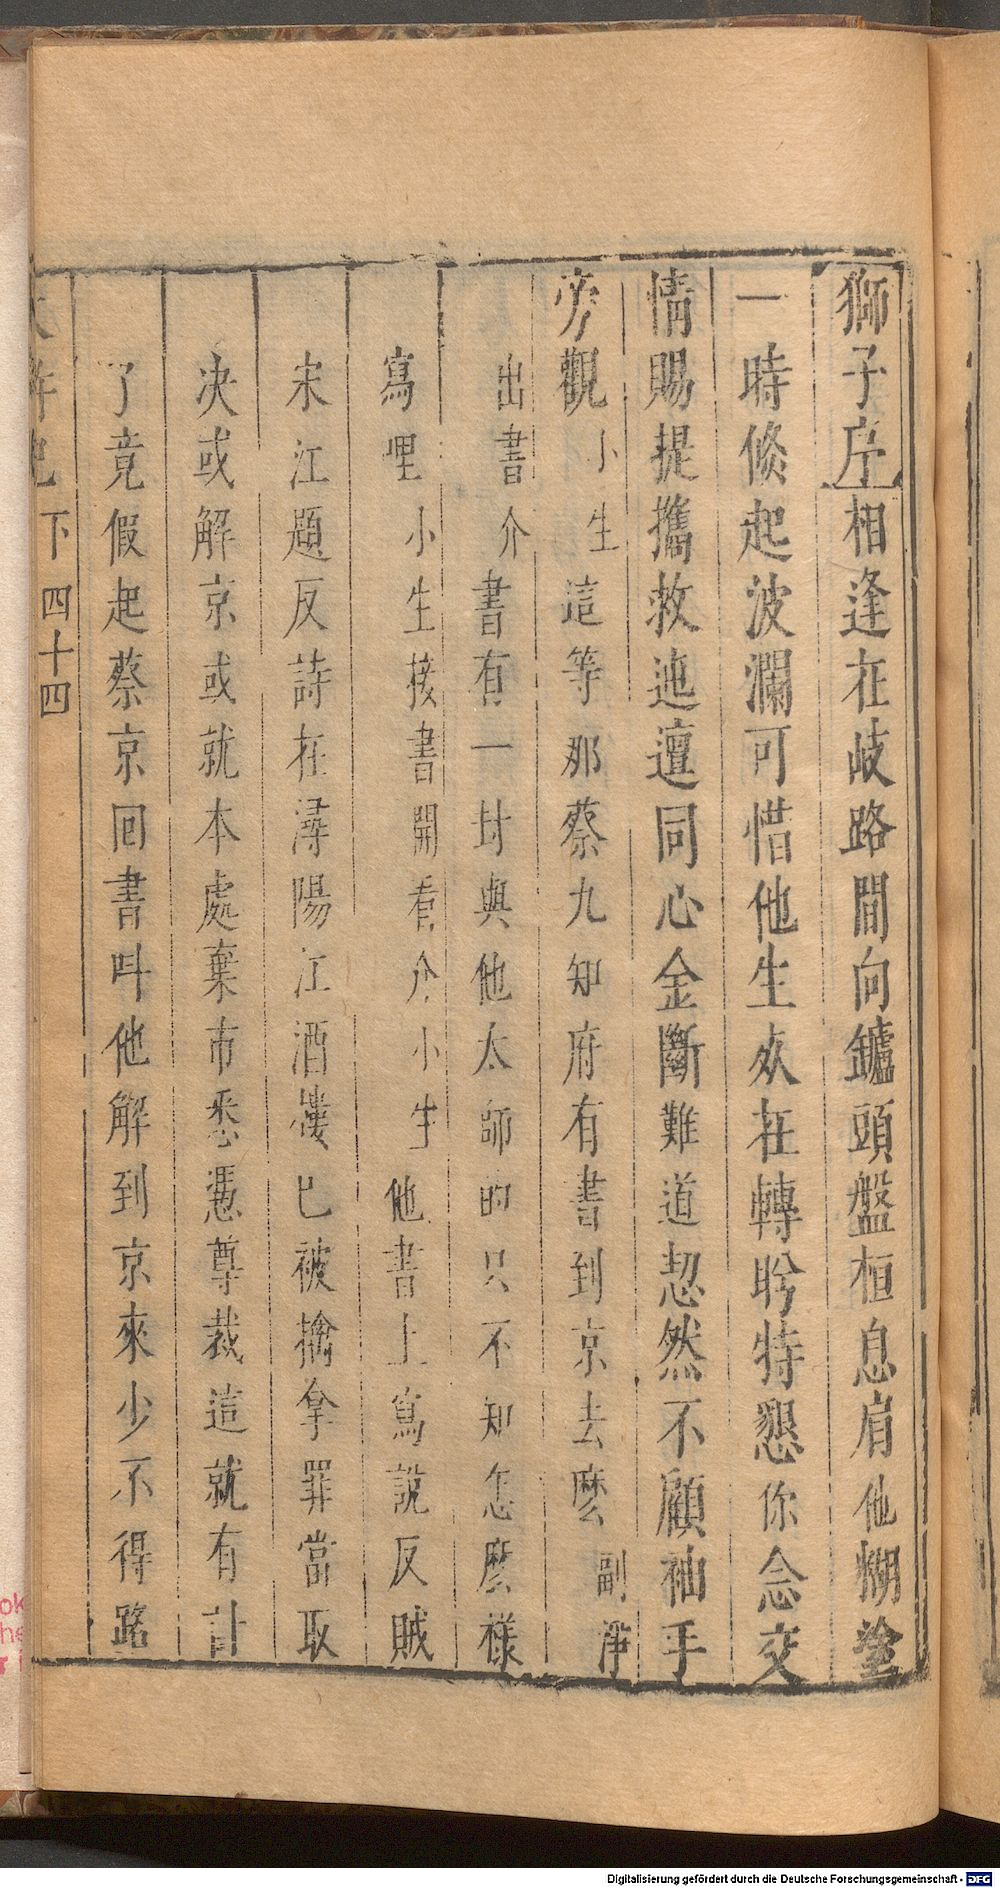 獅子序相逢在岐路間向鑪頭盤桓息肩他糊塗
一時倐起波瀾可惜他生死在轉盻特懇你念交
情賜提攜救迍邅同心金斷難道恝然不顧袖手
旁觀小生這等那蔡九知府有書到京去麽副淨
出書介書有一封與他太師的只不知怎麽樣
寫哩小生接書開看介小生他書上寫說反賊
宋江題反詩在潯陽江酒樓已被擒拿罪當取
决或解京或就本處棄市悉憑尊裁這就有計
了竟假起蔡京回書呌他解到京來少不得路
下 四十四
Digitalisierung gefördert durch die Deutsche Forschungsgemeinschaft - DFG